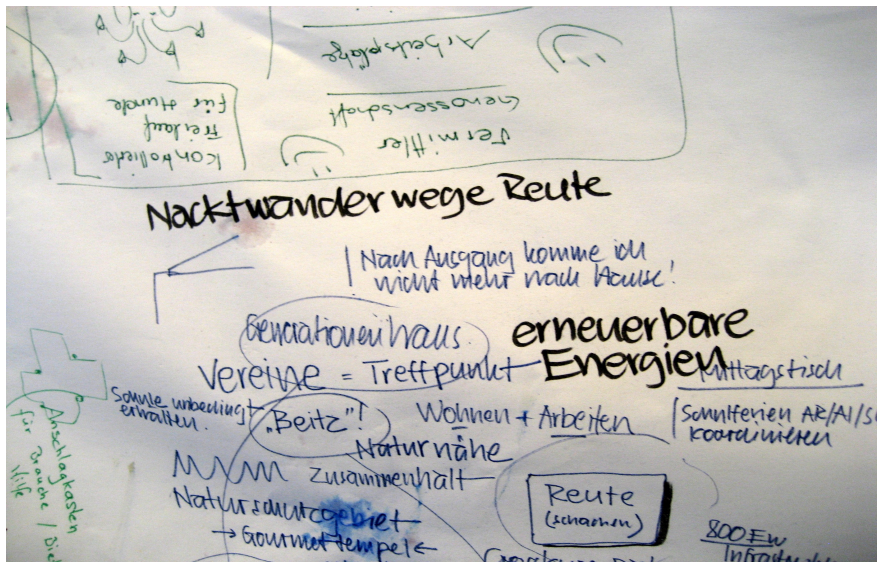 Arbeitsplätze
Genossenschaft
Vermittler
Kontrollierte
Freilauf
für Hunde
Nacktwanderwege Reute
Nach Ausgang komme ich
nicht mehr nach Hause!
Generationenhaus
erneuerbare
Energien
Vereine = Treffpunkt
Mittagstisch
Schule unbedingt
erhalten.
„Beitz"!
Wohnen + Arbeiten
Schulferien AR/AI/S
koordinieren
Naturnähe
Zusammenhalt
Naturschutzgebiet
→ Gourmettempel ←
Reute
(schachen)
800 EW
Anschlagkasten
für Brauche /
Hilfe